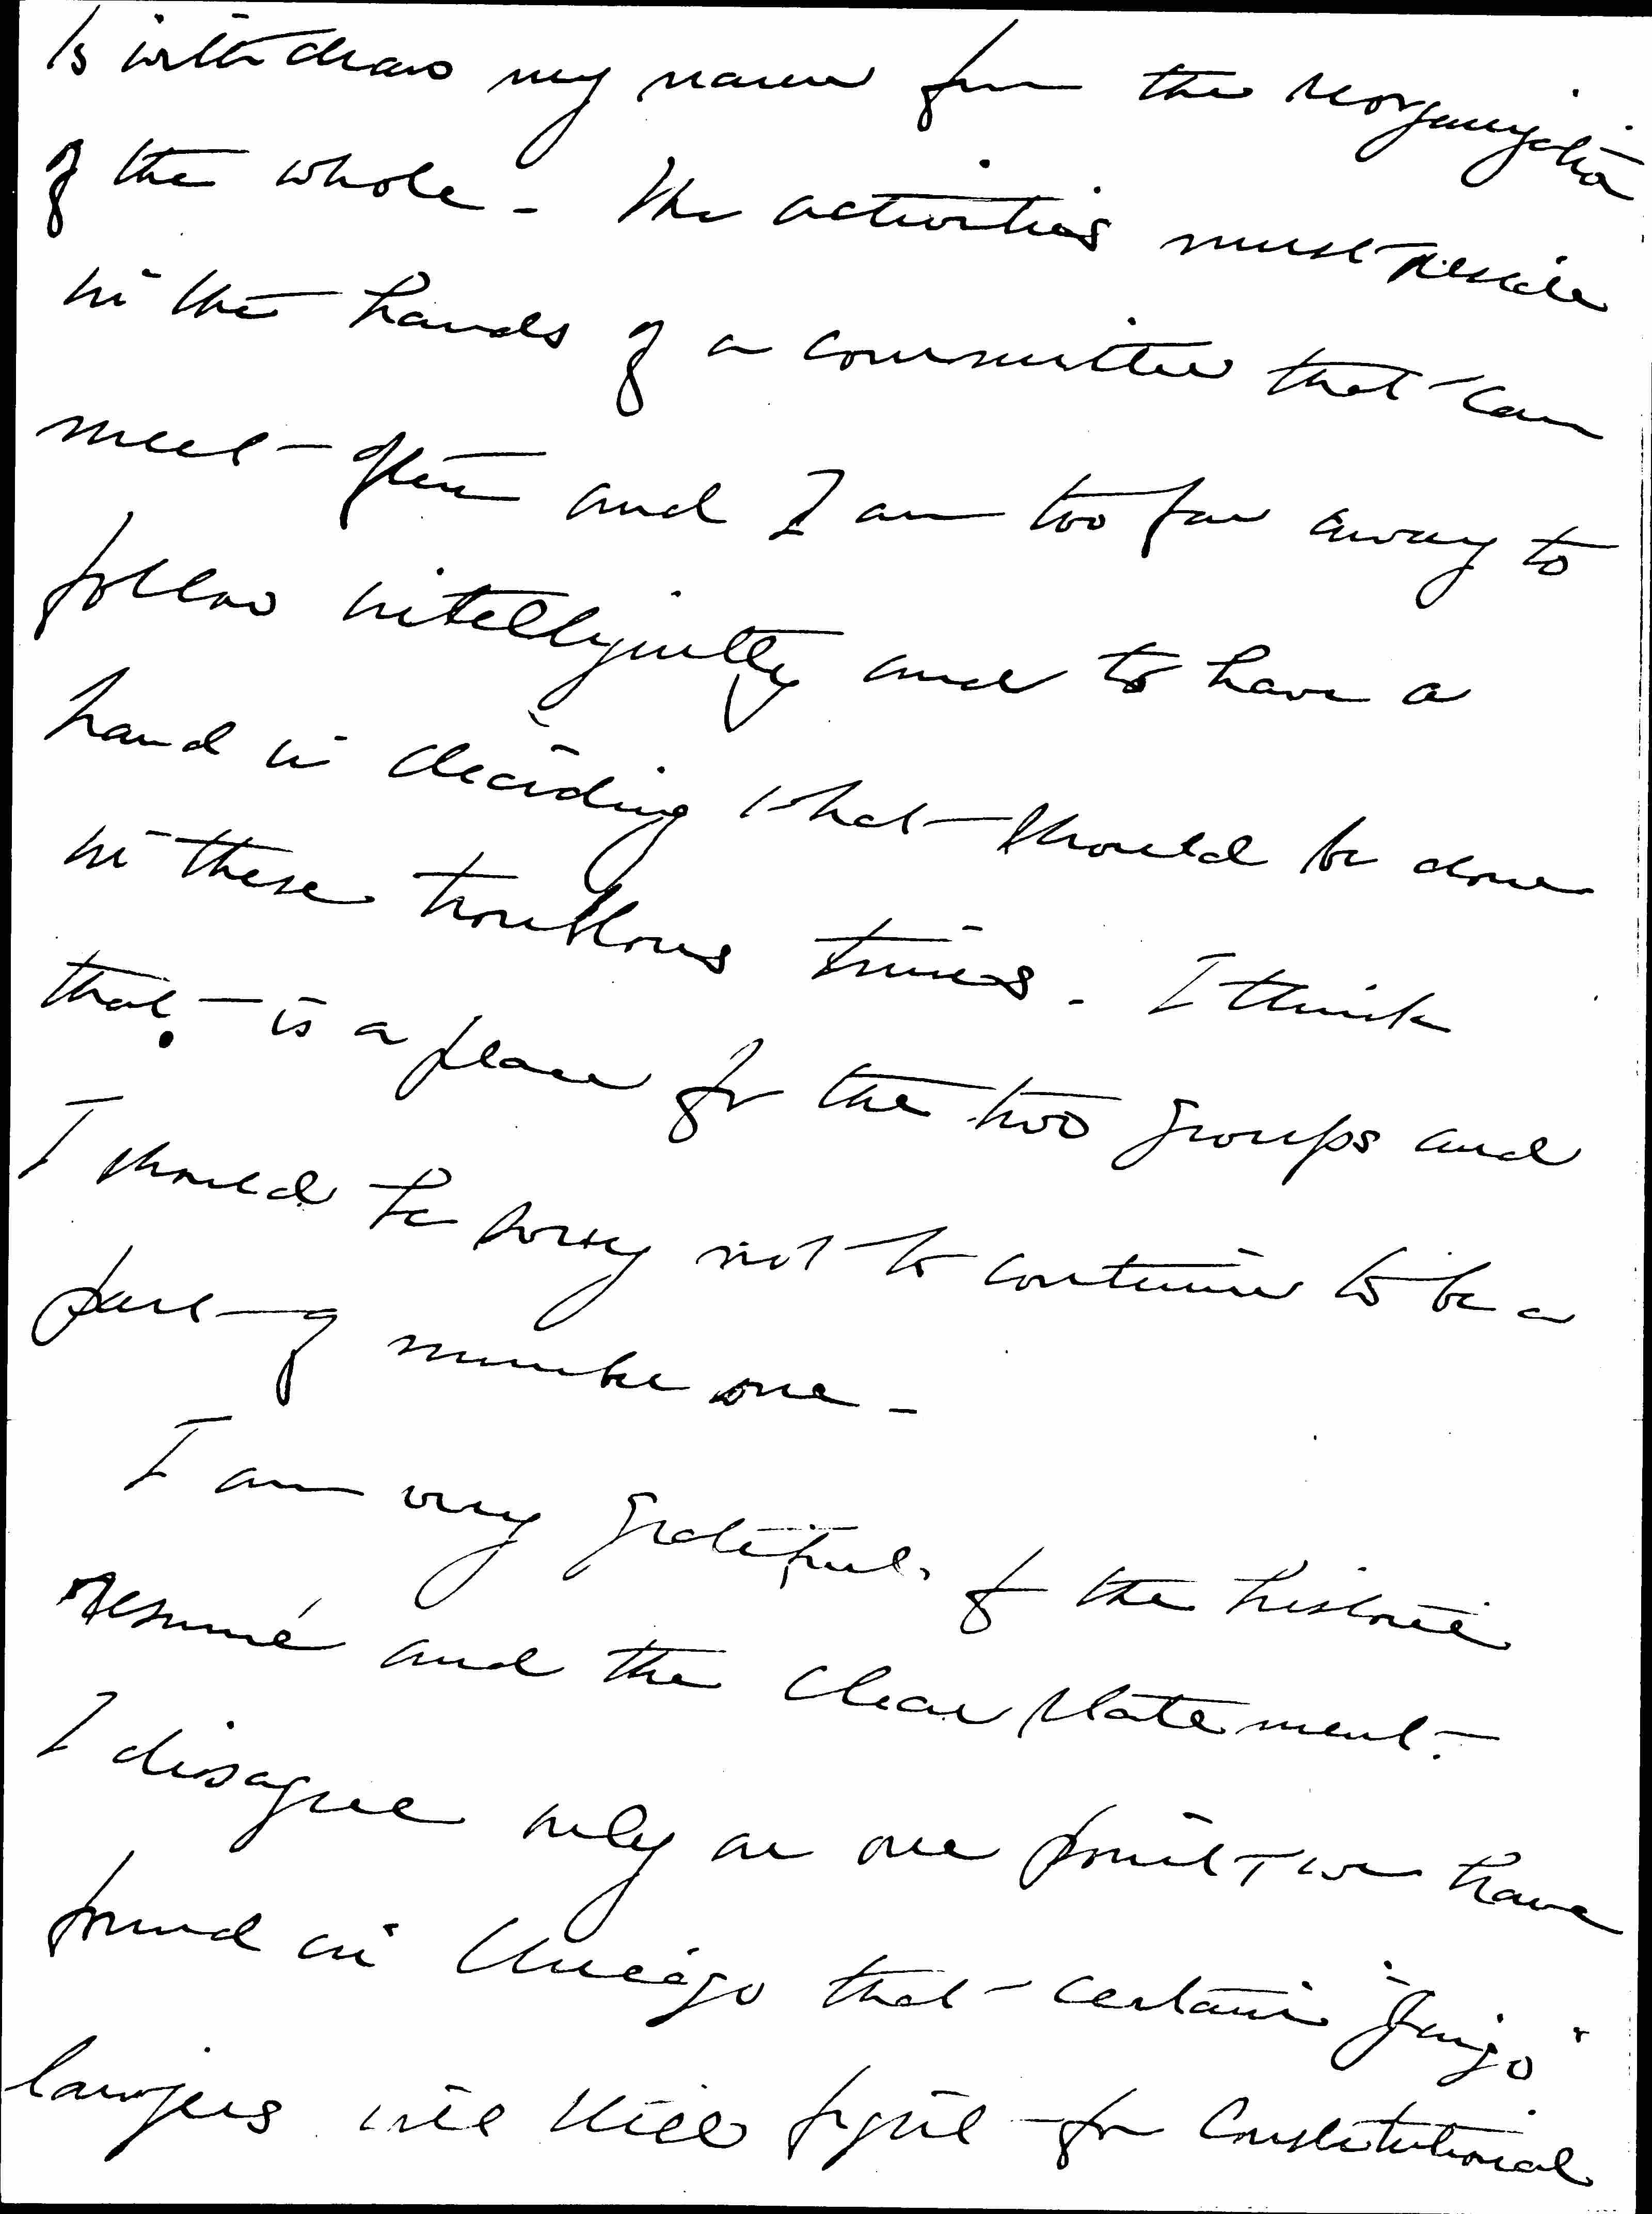 to withdraw my name from the reorganization
of the whole - The activities must reside
in the hands of a committee that can
meet often and I am too far away to
follow intelligently and to have a
hand in deciding what should be done
in these troublous times. I think
that is a place for the two groups and
I should be sorry not to continue to be a
part of number one -
I am very grateful for the historic
resumé and the clear statement.
I disagree only on one point - we have
found in Chicago that certain "jingo"
lawyers will still fight for Constitutional